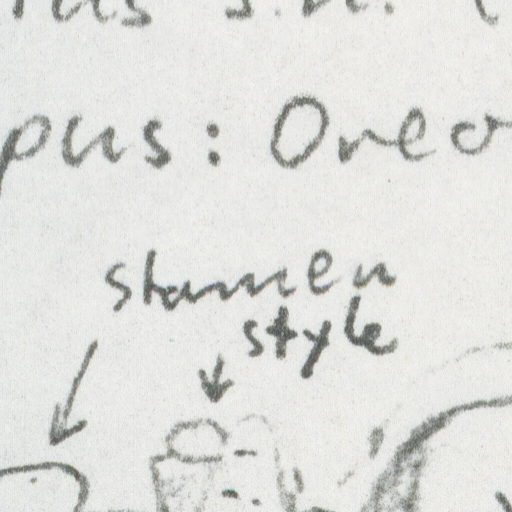 pus: Oreo
stamen
style